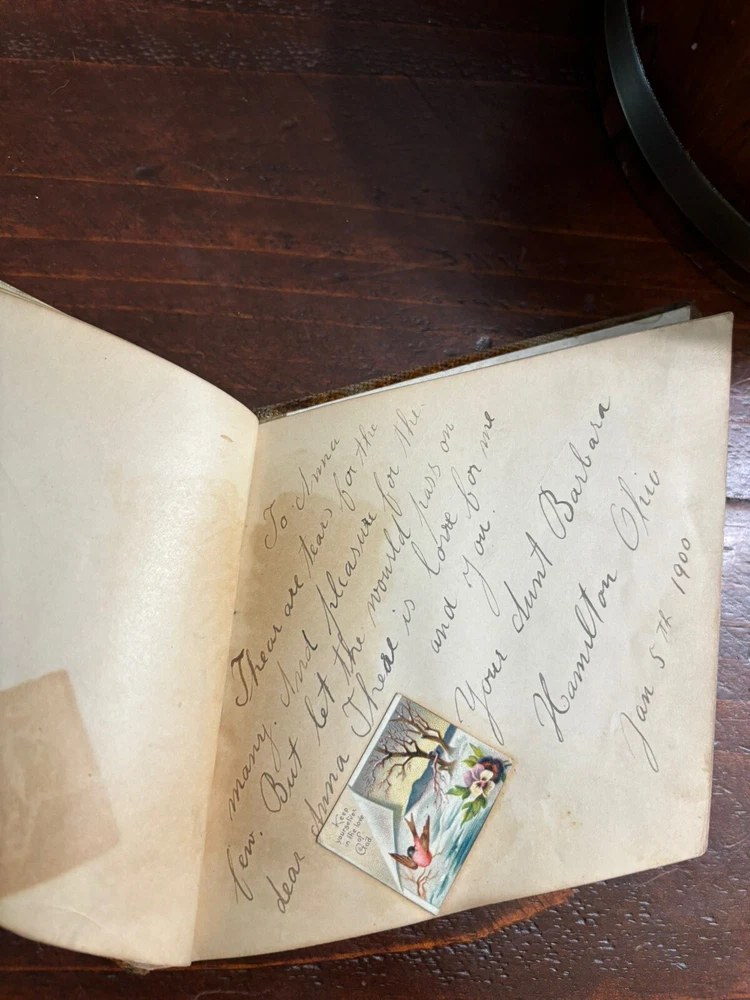 To Anna
Thear are tears for the
many. And pleasure for the
few. But let the would pass on
dear Anna There is love for me
and you.
Your Aunt Barbara
Hamilton Ohio
Jan 5 th 1900
Keep
yourselves
in the love
of
God.